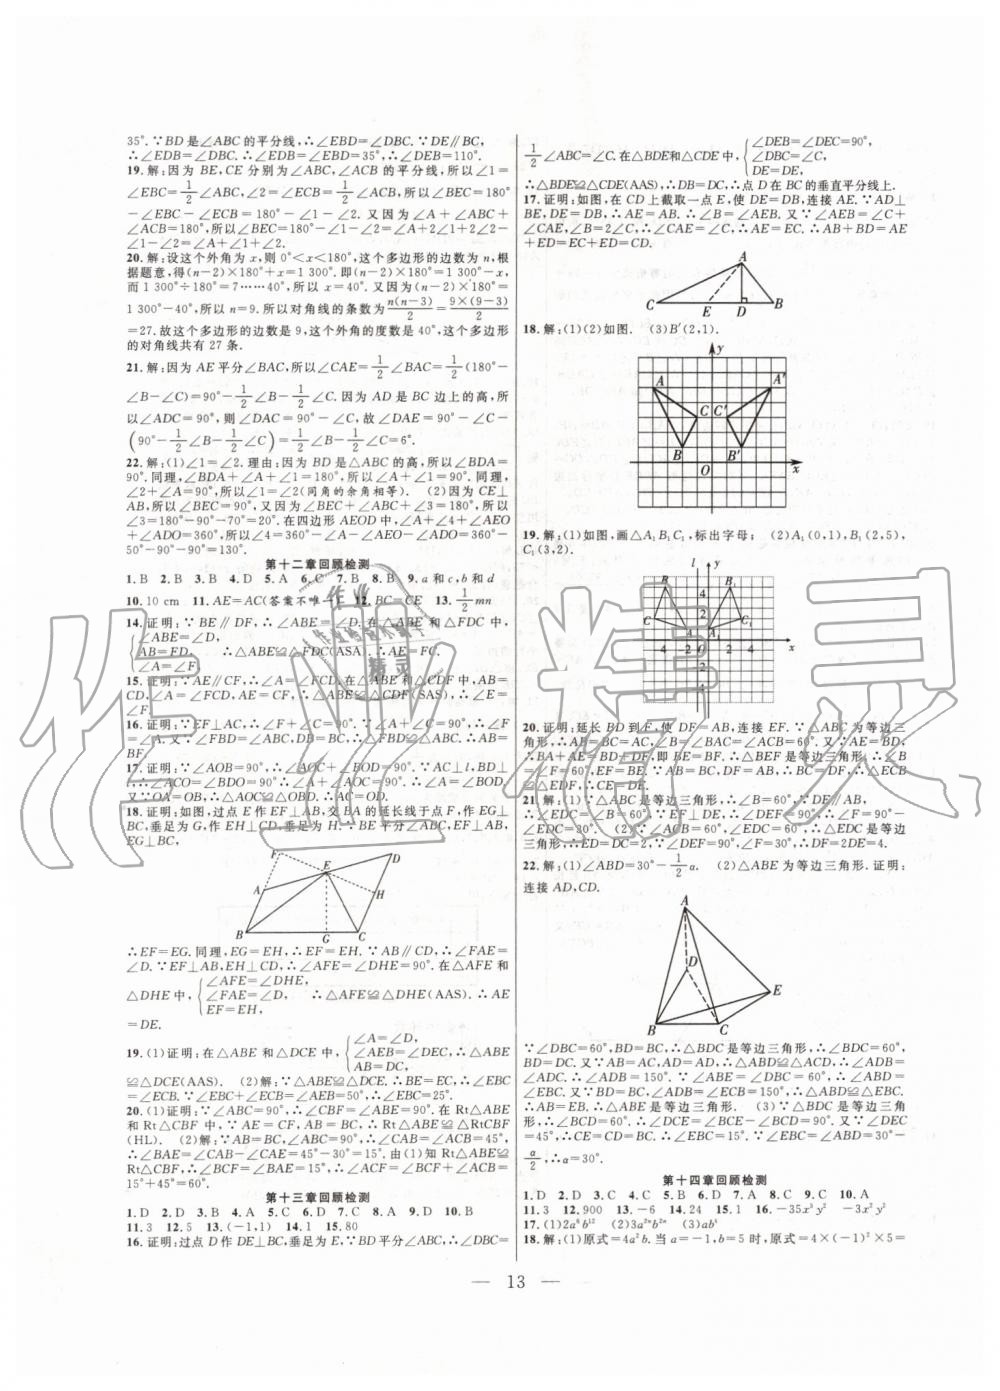 35°. ∵BD是∠ABC的平分线,∴∠EBD=∠DBC. ∵DE∥BC,
∴∠EDB=∠DBC. ∴∠EDB=∠EBD=35°,∴∠DEB=110°.
19. 解:因为 BE,CE 分别为∠ABC,∠ACB 的平分线,所以∠1=
∠EBC=1/2∠ABC,∠2=∠ECB=1/2∠ACB,所以∠BEC=180°
-∠EBC-∠ECB=180°-∠1-∠2. 又因为∠A+∠ABC+
∠ACB=180°,所以∠BEC=180°-∠1-∠2=∠A+2∠1+2∠2-
∠1-∠2=∠A+∠1+∠2.
20. 解:设这个外角为 x,则 0°<x<180°,这个多边形的边数为 n,根
据题意,得(n-2)×180°+x=1 300°. 即(n-2)×180°=1 300°-x,
而 1 300°÷180°=7……40°,所以 x=40°. 又因为(n-2)×180°=
1 300°-40°,所以 n=9. 所以对角线的条数为n(n-3)/2=9×(9-3)/2
=27. 故这个多边形的边数是 9,这个外角的度数是 40°,这个多边形
的对角线共有 27 条.
21. 解:因为 AE 平分∠BAC,所以∠CAE=1/2∠BAC=1/2(180°
-∠B-∠C)=90°-1/2∠B-1/2∠C. 因为 AD 是 BC 边上的高,所
以∠ADC=90°,则∠DAC=90°-∠C,故∠DAE=90°-∠C-
(90°-1/2∠B-1/2∠C)=1/2∠B-1/2∠C=6°.
22. 解:(1)∠1=∠2. 理由:因为 BD 是△ABC 的高,所以∠BDA=
90°. 同理,∠BDA+∠A+∠1=180°,所以∠A+∠1=90°. 同理,
∠2+∠A=90°,所以∠1=∠2(同角的余角相等). (2)因为 CE⊥
AB,所以∠BEC=90°,又因为∠BEC+∠ABC+∠3=180°,所以
∠3=180°-90°-70°=20°. 在四边形 AEOD 中,∠A+∠4+∠AEO
+∠ADO=360°,所以∠4=360°-∠A-∠AEO-∠ADO=360°-
50°-90°-90°=130°.
第十二章回顾检测
1. B 2. B 3. B 4. D 5. A 6. C 7. B 8. B 9. a和c,b和d
10. 10 cm 11. AE=AC(答案不唯一) 12. BC=CE 13. 1/2mn
14. 证明:∵BE∥DF,∴∠ABE=∠D. 在△ABE 和△FDC 中,
∠ABE=∠D,
AB=FD, ∴△ABE≌△FDC(ASA). ∴AE=FC.
∠A=∠F,
15. 证明:∵AE∥CF,∴∠A=∠FCD. 在△ABE 和△CDF 中,AB=
CD,∠A=∠FCD,AE=CF,∴△ABE≌△CDF(SAS),∴∠E=
∠F.
16. 证明:∵EF⊥AC,∴∠F+∠C=90°. ∵∠A+∠C=90°,∴∠F=
∠A. 又∵∠FBC=∠ABD,DB=BC,∴△FBC≌△ABD,∴AB=
BF.
17. 证明:∵∠AOB=90°,∴∠AOC+∠BOD=90°. ∵AC⊥l,BD⊥l,
∴∠ACO=∠BDO=90°,∴∠A+∠AOC=90°. ∴∠A=∠BOD.
又∵OA=OB,∴△AOC≌△OBD. ∴AC=OD.
18. 证明:如图,过点 E 作 EF⊥AB,交 BA 的延长线于点 F,作 EG⊥
BC,垂足为 G,作 EH⊥CD,垂足为 H. ∵BE 平分∠ABC,EF⊥AB,
EG⊥BC,
F
D
E
A
H
B
G
C
∴EF=EG. 同理,EG=EH,∴EF=EH. ∵AB∥CD,∴∠FAE=
∠D. ∵EF⊥AB,EH⊥CD,∴∠AFE=∠DHE=90°. 在△AFE 和
△DHE 中,
∠AFE=∠DHE,
∠FAE=∠D,
EF=EH,
∴△AFE≌△DHE(AAS). ∴AE
=DE.
19. (1)证明:在△ABE 和△DCE 中,
∠A=∠D,
∠AEB=∠DEC,
AB=DC,
∴△ABE
≌△DCE(AAS). (2)解:∵△ABE≌△DCE. ∴BE=EC,∴∠EBC
=∠ECB. ∵∠EBC+∠ECB=∠AEB=50°,∴∠EBC=25°.
20. (1)证明:∵∠ABC=90°,∴∠CBF=∠ABE=90°. 在 Rt△ABE
和 Rt△CBF 中,∵AE=CF,AB=BC,∴Rt△ABE≌RtCBF
(HL). (2)解:∵AB=BC,∠ABC=90°,∴∠CAB=∠ACB=45°,
∴∠BAE=∠CAB-∠CAE=45°-30°=15°. 由(1)知 Rt△ABE≌
Rt△CBF,∴∠BCF=∠BAE=15°,∴∠ACF=∠BCF+∠ACB=
15°+45°=60°.
第十三章回顾检测
1. D 2. D 3. B 4. A 5. C 6. C 7. D 8. D 9. D 10. B
11. 3 12. 5 13. (-1,1) 14. 1 15. 80
16. 证明:过点 D 作 DE⊥BC,垂足为 E,∵BD平分∠ABC,∴∠DBC=
1/2∠ABC=∠C. 在△BDE和△CDE 中,
∠DEB=∠DEC=90°,
∠DBC=∠C,
DE=DE,
∴△BDE≌△CDE(AAS),∴DB=DC,∴点 D 在 BC 的垂直平分线上.
17. 证明:如图,在 CD 上截取一点 E,使 DE=DB,连接 AE. ∵AD⊥
BE,DE=DB,∴AE=AB. ∴∠B=∠AEB. 又∵∠AEB=∠C+
∠CAE,∠B=2∠C,∴∠CAE=∠C. ∴AE=EC. ∴AB+BD=AE
+ED=EC+ED=CD.
A
C
E
D
B
18. 解:(1)(2)如图. (3)B′(2,1).
y
A
A′
C
C′
B
B′
O
x
19. 解:(1)如图,画△A₁B₁C₁,标出字母; (2)A₁(0,1),B₁(2,5),
C₁(3,2).
l
y
B
4
B₁
C
2
C₁
A
A₁
-4
-2
O
2
4
x
-2
-4
20. 证明:延长 BD 到 F,使 DF=AB,连接 EF. ∵△ABC 为等边三
角形,∴AB=BC=AC,∠B=∠BAC=∠ACB=60°. ∵AE=BD,
∴BA+AE=BD+DF,即 BE=BF. ∴△BEF 是等边三角形,∴∠B
=∠F=60°,EF=BE. ∵AB=BC,DF=AB,∴BC=DF,∴△ECB
≌△EDF,∴CE=DE.
21. 解:(1)∵△ABC 是等边三角形,∴∠B=60°,∵DE∥AB,
∴∠EDC=∠B=60°. ∵EF⊥DE,∴∠DEF=90°,∴∠F=90°-
∠EDC=30°. (2)∵∠ACB=60°,∠EDC=60°,∴△EDC 是等边三
角形. ∴ED=DC=2,∵∠DEF=90°,∠F=30°,∴DF=2DE=4.
22. 解:(1)∠ABD=30°-1/2α. (2)△ABE 为等边三角形. 证明:
连接 AD,CD.
A
D
E
B
C
∵∠DBC=60°,BD=BC,∴△DBC 是等边三角形,∴∠BDC=60°,
BD=DC. 又∵AB=AC,AD=AD,∴△ABD≌△ACD. ∴∠ADB=
∠ADC. ∴∠ADB=150°. ∵∠ABE=∠DBC=60°,∴∠ABD=
∠EBC. 又∵BD=BC,∠ADB=∠ECB=150°,∴△ABD≌△EBC.
∴AB=EB. ∴△ABE 是等边三角形. (3)∵△BDC 是等边三角
形,∴∠BCD=60°. ∴∠DCE=∠BCE-∠BCD=90°. 又∵∠DEC
=45°,∴CE=CD=BC. ∴∠EBC=15°. ∵∠EBC=∠ABD=30°-
α/2,∴α=30°.
第十四章回顾检测
1. D 2. D 3. C 4. C 5. B 6. D 7. A 8. C 9. C 10. A
11. 3 12. 900 13. -6 14. 24 15. 1 16. -35x³y²
17. (1)2a⁶b¹² (2)3a²ⁿb²ⁿ (3)ab⁴
18. 解:(1)原式=4a²b. 当 a=-1,b=5 时,原式=4×(-1)²×5=
— 13 —
作业精灵